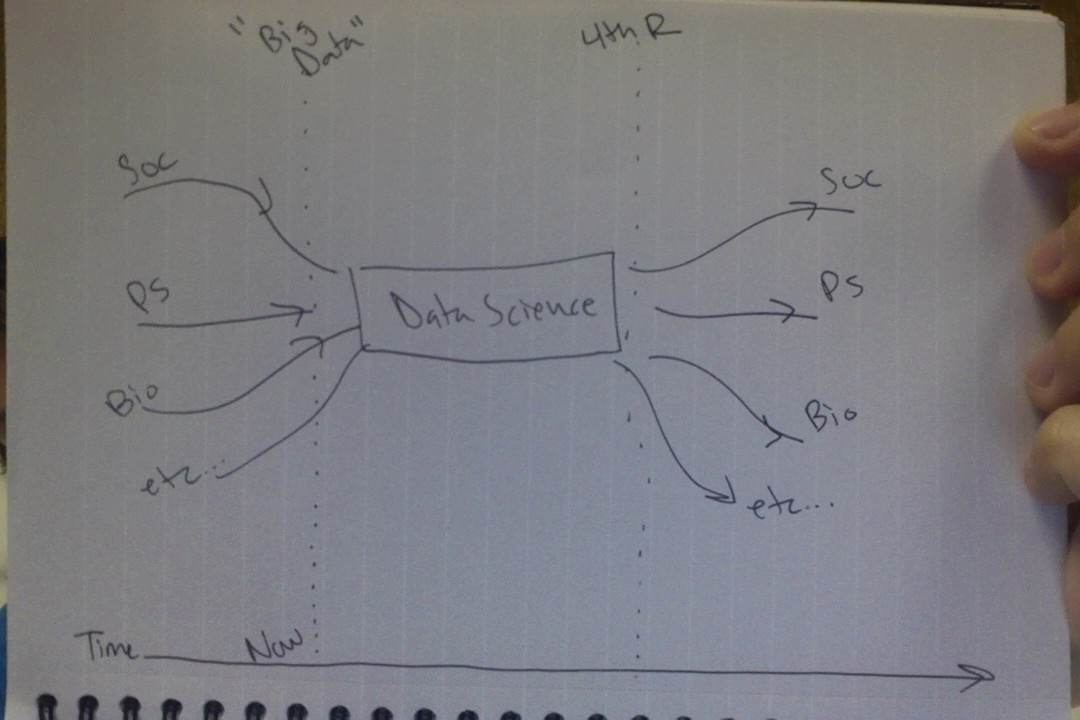 "Big
Data"
4th R
Soc
PS
Bio
etc...
Data Science
Soc
PS
Bio
etc...
Time
Now